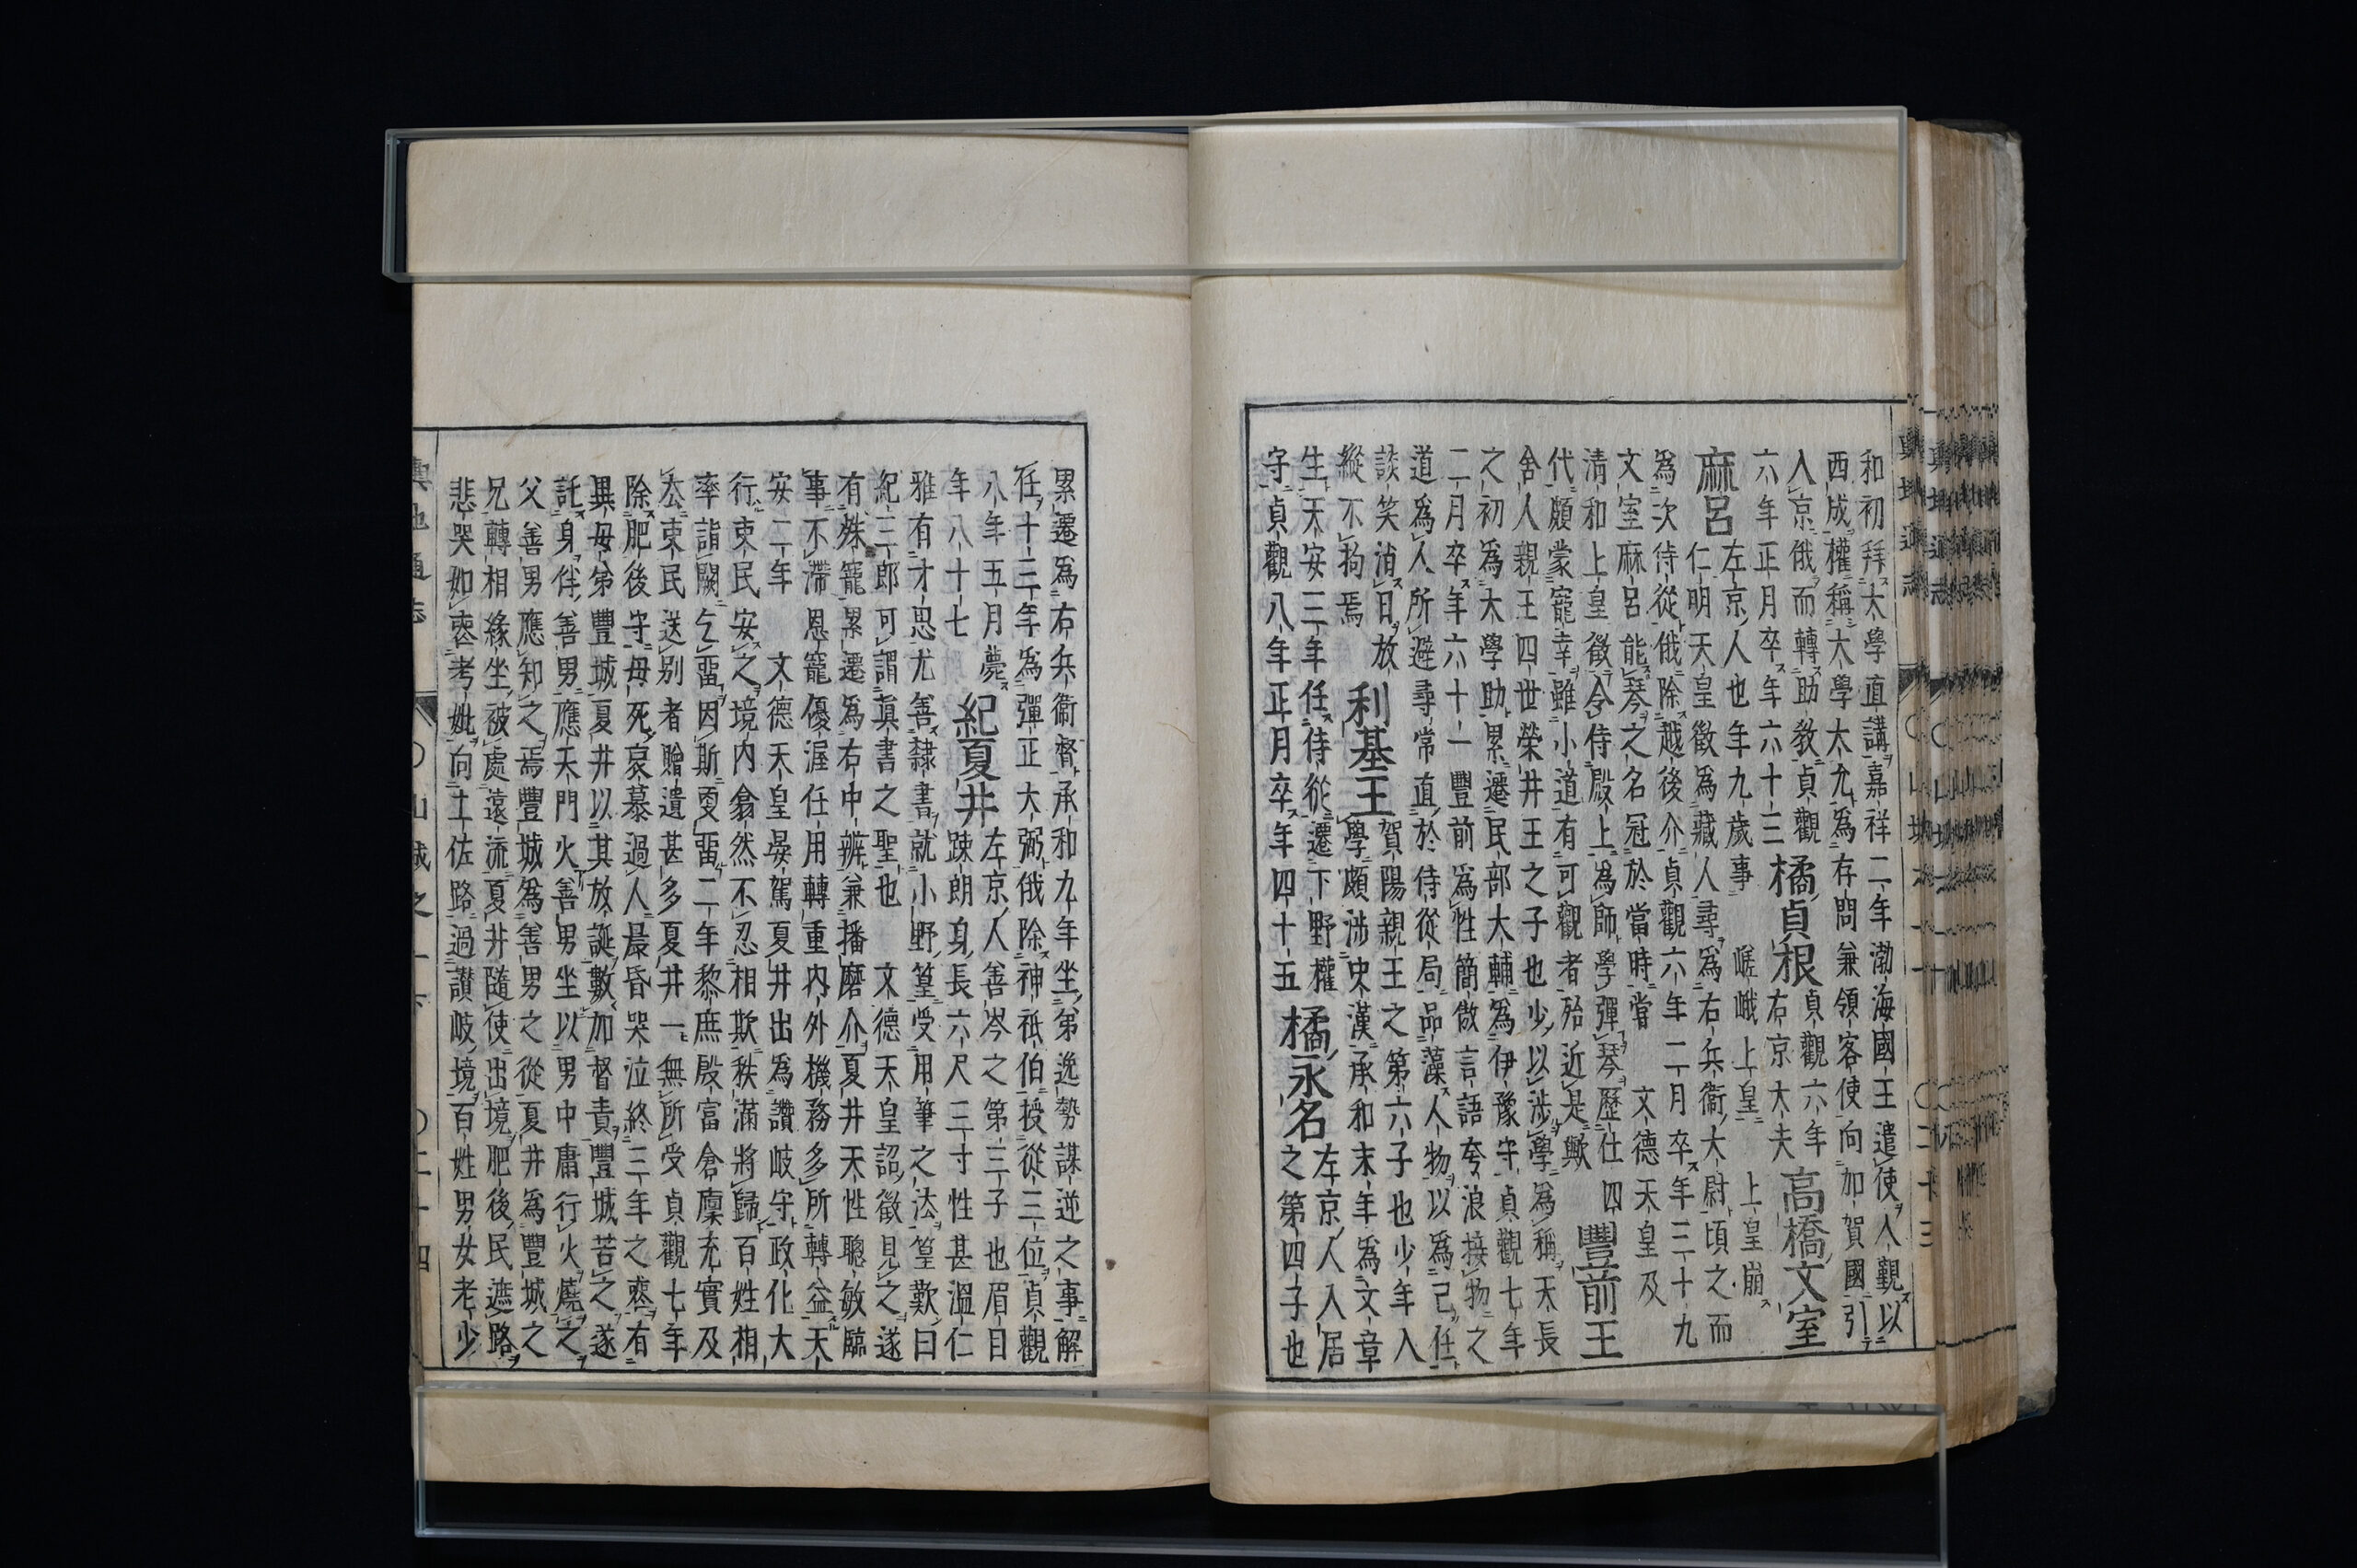 和初拜大學直講嘉祥二年渤海國王遣使入覲以
西成權稱大學大允為存問兼領客使向加賀國引
入京俄而轉助敎貞觀
六年正月卒年六十三
橘貞根
貞觀六年
右京大夫
高橋文室
麻呂
左京人也年九歲事　嵯峨上皇　上皇崩
仁明天皇徵為藏人尋為右兵衞大尉頃之而
為次侍從俄除越後介貞觀六年二月卒年三十九
文室麻呂能琴之名冠於當時嘗　文德天皇及
清和上皇徵令侍殿上為師學彈琴歷仕四
代頗蒙寵幸雖小道有可觀者殆近是歟
豐前王
舍人親王四世榮井王之子也少以涉學為稱天長
之初為大學助累遷民部大輔為伊豫守貞觀七年
二月卒年六十一豐前為性簡傲言語夸浪接物之
道為人所避尋常直於侍從局品藻人物以為己任
談笑消日放
縱不拘焉
利基王
賀陽親王之第六子也少年入
學頗涉史漢承和末年為文章
生天安三年任侍從遷下野權
守貞觀八年正月卒年四十五
橘永名
左京人入居
之第四子也
累遷為右兵衞督承和九年坐弟逸勢謀逆之事解
任十三年為彈正大弼俄除神祇伯授從三位貞觀
八年五月薨
年八十七
紀夏井
左京人善岑之第三子也眉目
疎朗身長六尺三寸性甚溫仁
雅有才思尤善隸書就小野篁受用筆之法篁歎曰
紀三郎可謂眞書之聖也　文德天皇詔徵見之遂
有殊寵累遷為右中辨兼播磨介夏井天性聰敏臨
事不滯恩寵優渥任用轉重內外機務多所轉益天
安二年　文德天皇晏駕夏井出為讚岐守政化大
行吏民安之境內翕然不忍相欺秩滿將歸百姓相
率詣闕乞畱因斯更畱二年黎庶殷富倉廩充實及
去吏民送別者贈遺甚多夏井一無所受貞觀七年
除肥後守母死哀慕過人晨昏哭泣終三年之喪有
異母弟豐城夏井以其放誕數加督責豐城苦之遂
託身伴善男應天門火善男坐以男中庸行火燒之
父善男應知之焉豐城為善男之從夏井為豐城之
兄轉相緣坐被處遠流夏井隨使出境肥後民遮路
悲哭如喪考妣向土佐路過讃岐境百姓男女老少